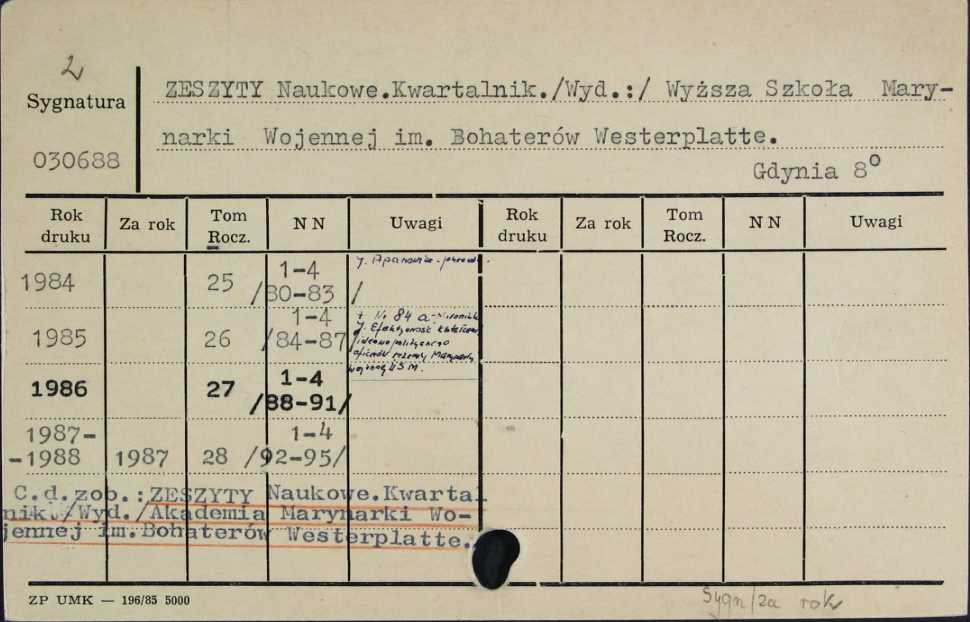 2
Sygnatura
030688
ZESZYTY Naukowe.Kwartalnik./Wyd.:/ Wyższa Szkoła Mary-
narki Wojennej im. Bohaterów Westerplatte.
Gdynia 8°
Rok druku Za rok Tom Rocz. NN Uwagi Rok druku Za rok Tom Rocz. NN Uwagi
1984 25 1-4 /80-83 /
1985 26 1-4 /84-87/
+ Nr 84 a
J. Efektywność
1986 27 1-4 /88-91/
1987-
-1988 1987 28 1-4 /92-95/
C.d.zob.:ZESZYTY Naukowe.Kwartal
nik./Wyd./Akademia Marynarki Wo-
jennej im.Bohaterów Westerplatte.
ZP UMK — 196/85 5000
Sygn/za rok